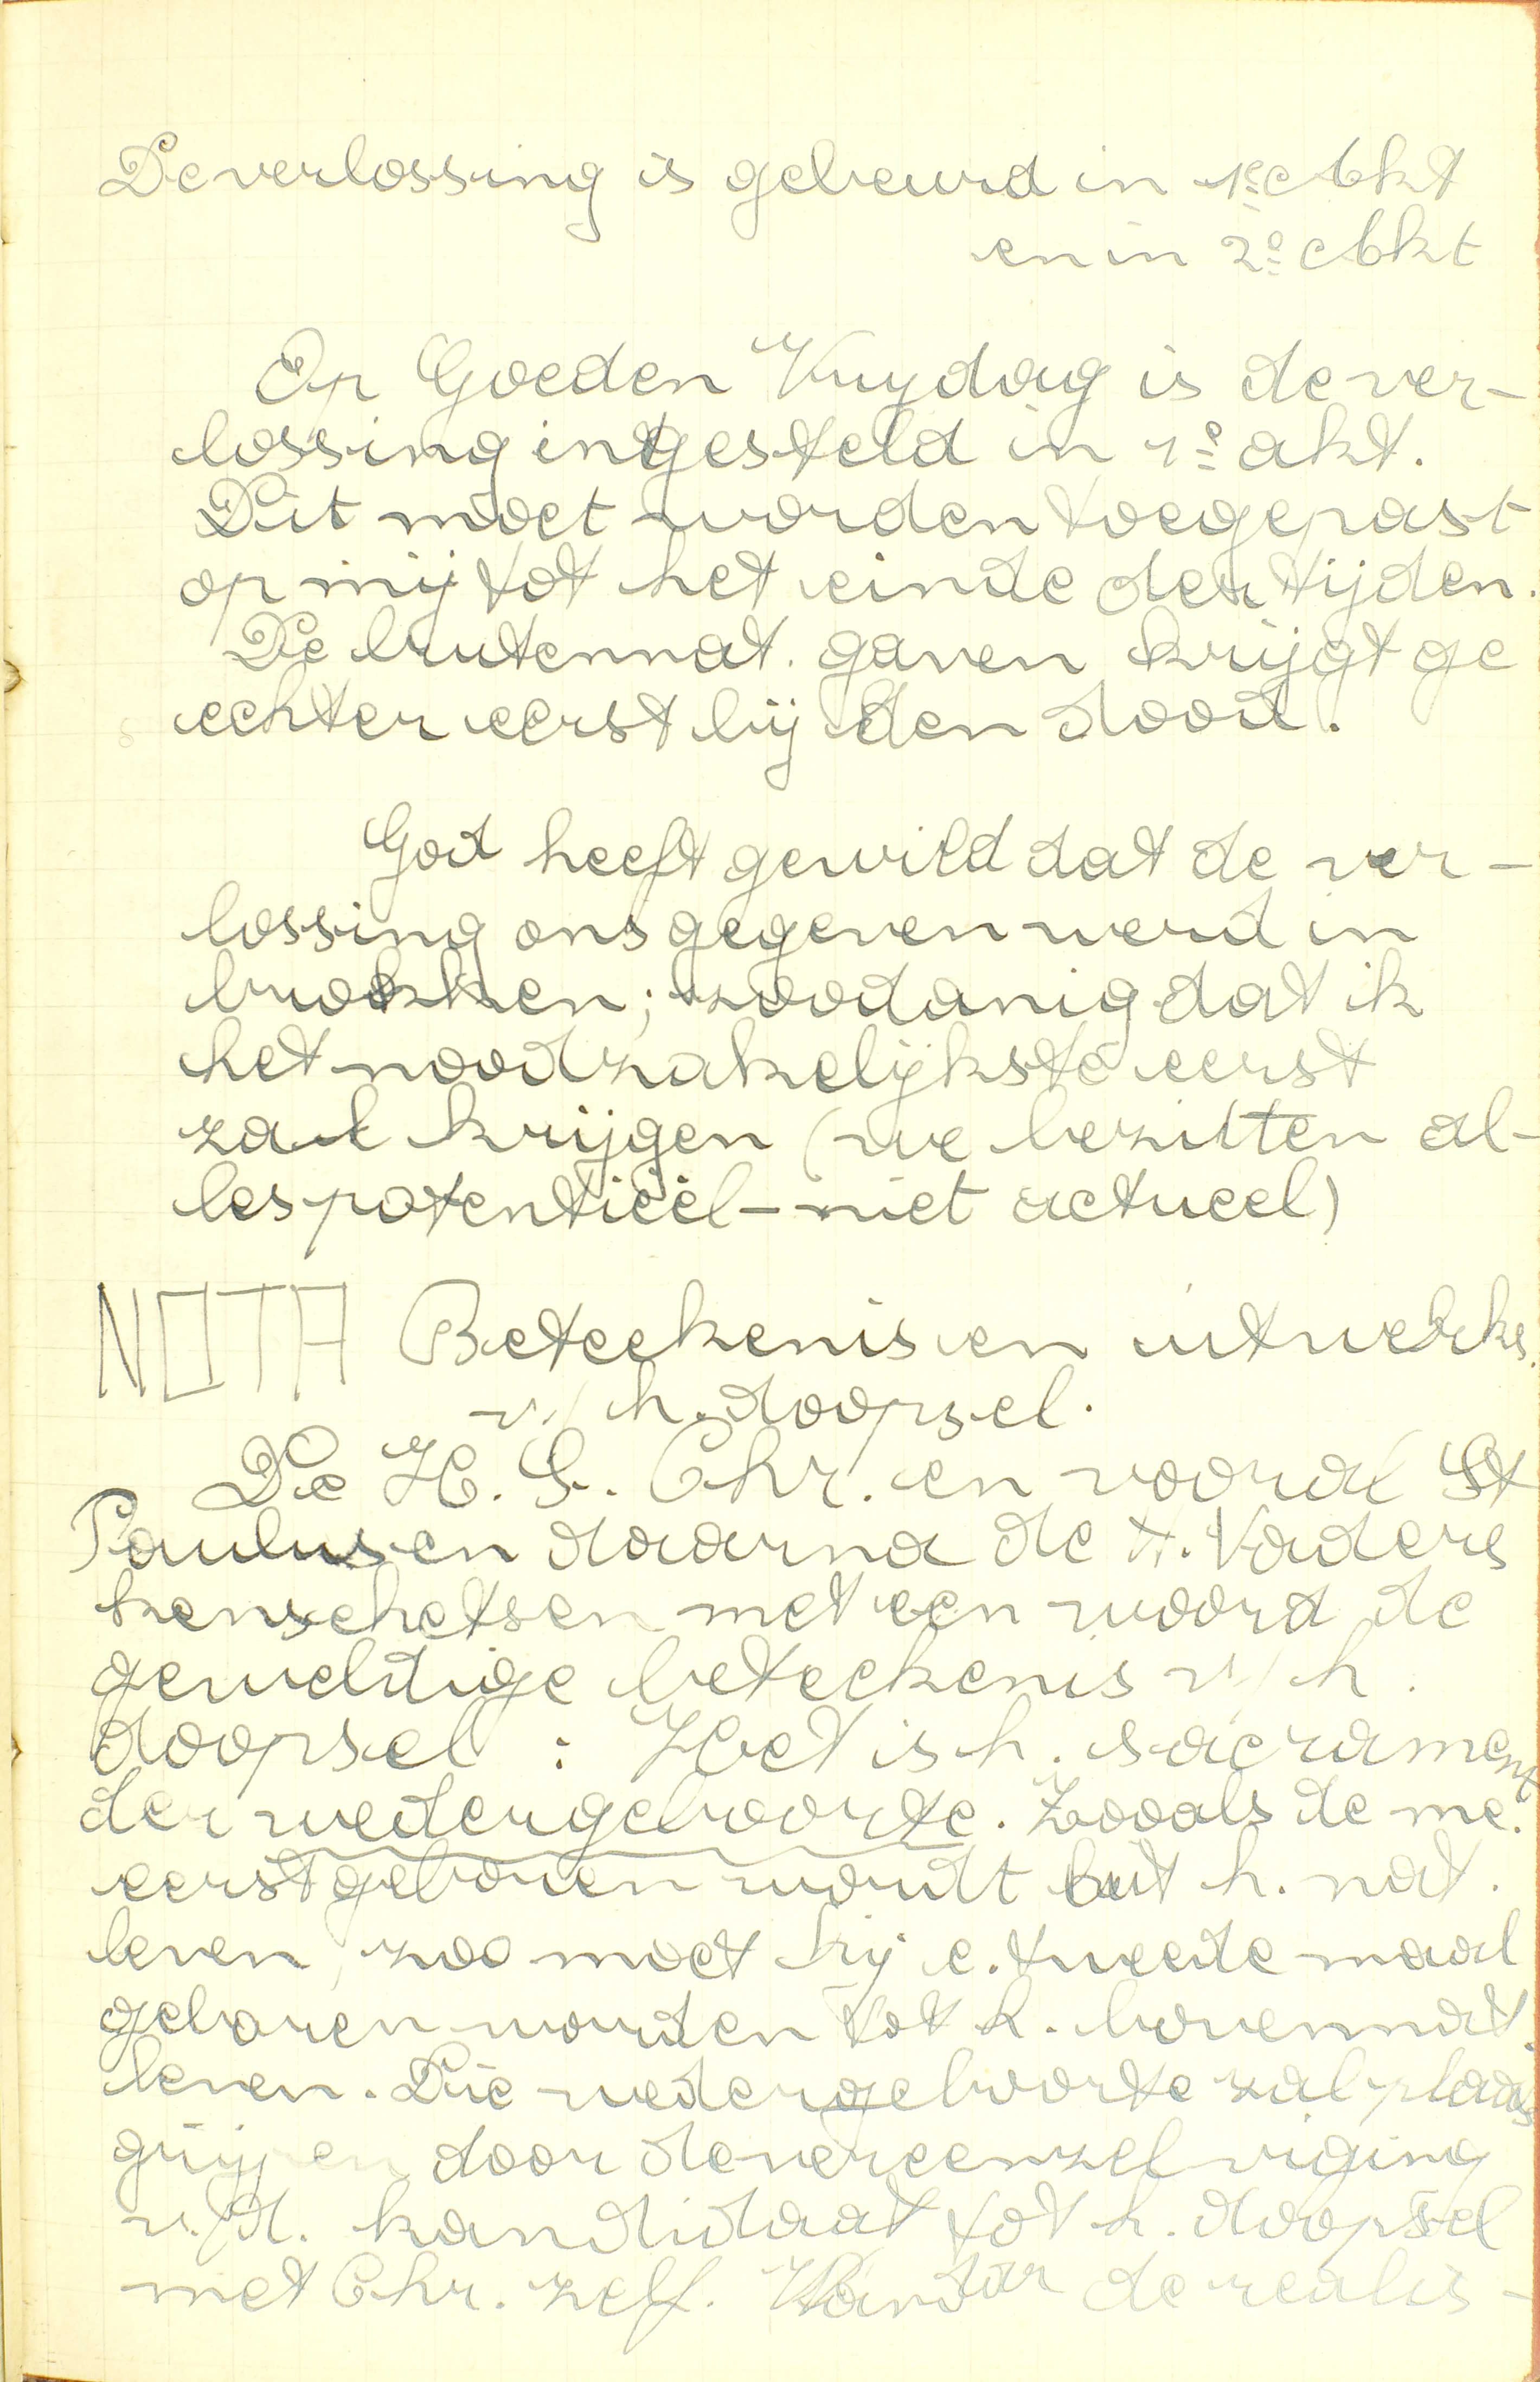 De verlossing is gebeurd in 1e Akt
en in 2e Akt
Op Goeden Vrydag is de ver-
lossing ingesteld in 1e akt.
Dit moet worden toegepast
op mij tot het einde der tijden.
De buitennat. gaven krijgt ge
echter eerst bij den dood.
God heeft gewild dat de ver-
lossing ons gegeven werd in
brokken; zoodanig dat ik
het noodzakelijkste eerst
zal krijgen (we bezitten al-
les potentieël - niet actueel)
NOTA Beteekenis en uitwerks.
v/ h. doopsel.
De H. S. Chr. en vooral St
Paulus en daarna de H. Vaders
kenschetsen met een woord de
geweldige beteekenis v/ h.
doopsel : Het is h. sacrament
der wedergeboorte. Zooals de me.
eerst geboren wordt tut h. nat.
leven, zoo moet hij e. tweede maal
geboren worden tot h. bovennat.
leven. Die wedergeboorte zal plaats
grijpen door de vereenzelviging
v./d. kandidaat tot h. doopsel
met Chr. zelf. Vandaar de realis-